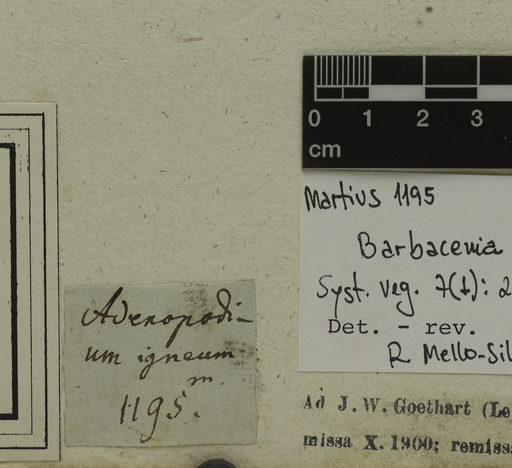 0 1 2 3
cm
Martius 1195
Barbacenia
Syst. veg. 7(1): 2
Det. - rev.
R Mello-Sil
Adenopodi-
um igneum
m.
1195.
Ad J. W. Goethart (Le
missa X. 1900; remiss